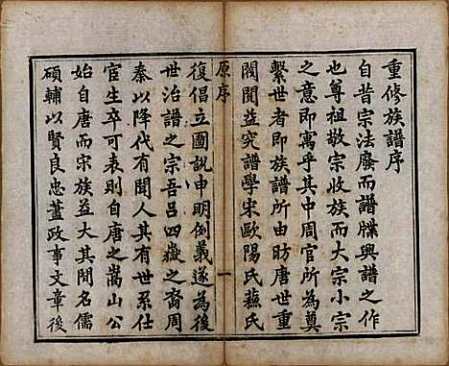 重修族譜序
自昔宗法廢而譜牒興譜之作
也尊祖敬宗收族而大宗小宗
之意即寓乎其中周官所為奠
繫世者即族譜所由昉唐世重
閥閱益究譜學宋歐陽氏蘇氏
原序
一
復倡立圖說申明例義遂為後
世治譜之宗吾呂四嶽之裔周
秦以降代有聞人其有世系仕
宦生卒可表則自唐之嵩山公
始自唐而宋族益大其間名儒
碩輔以賢良忠藎政事文章後